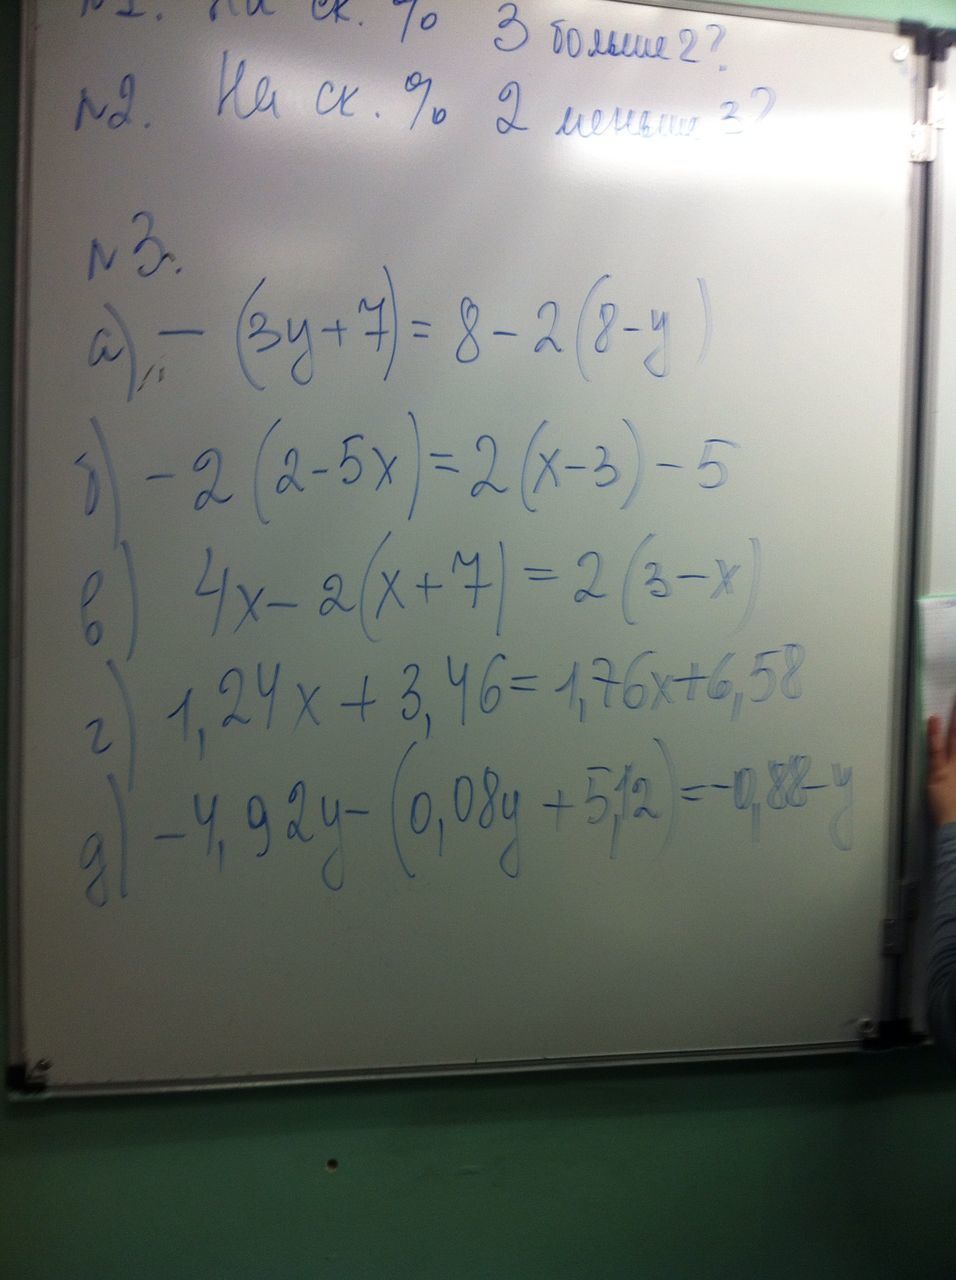 №1. На ск. % 3 больше 2?
№2. На ск. % 2 меньше 3?
№3.
а) - (3y+7) = 8 - 2(8-y)
б) -2(2-5x) = 2(x-3) - 5
в) 4x - 2(x+7) = 2(3-x)
г) 1,24x + 3,46 = 1,76x + 6,58
д) -4,92y - (0,08y + 5,12) = -0,88 - y